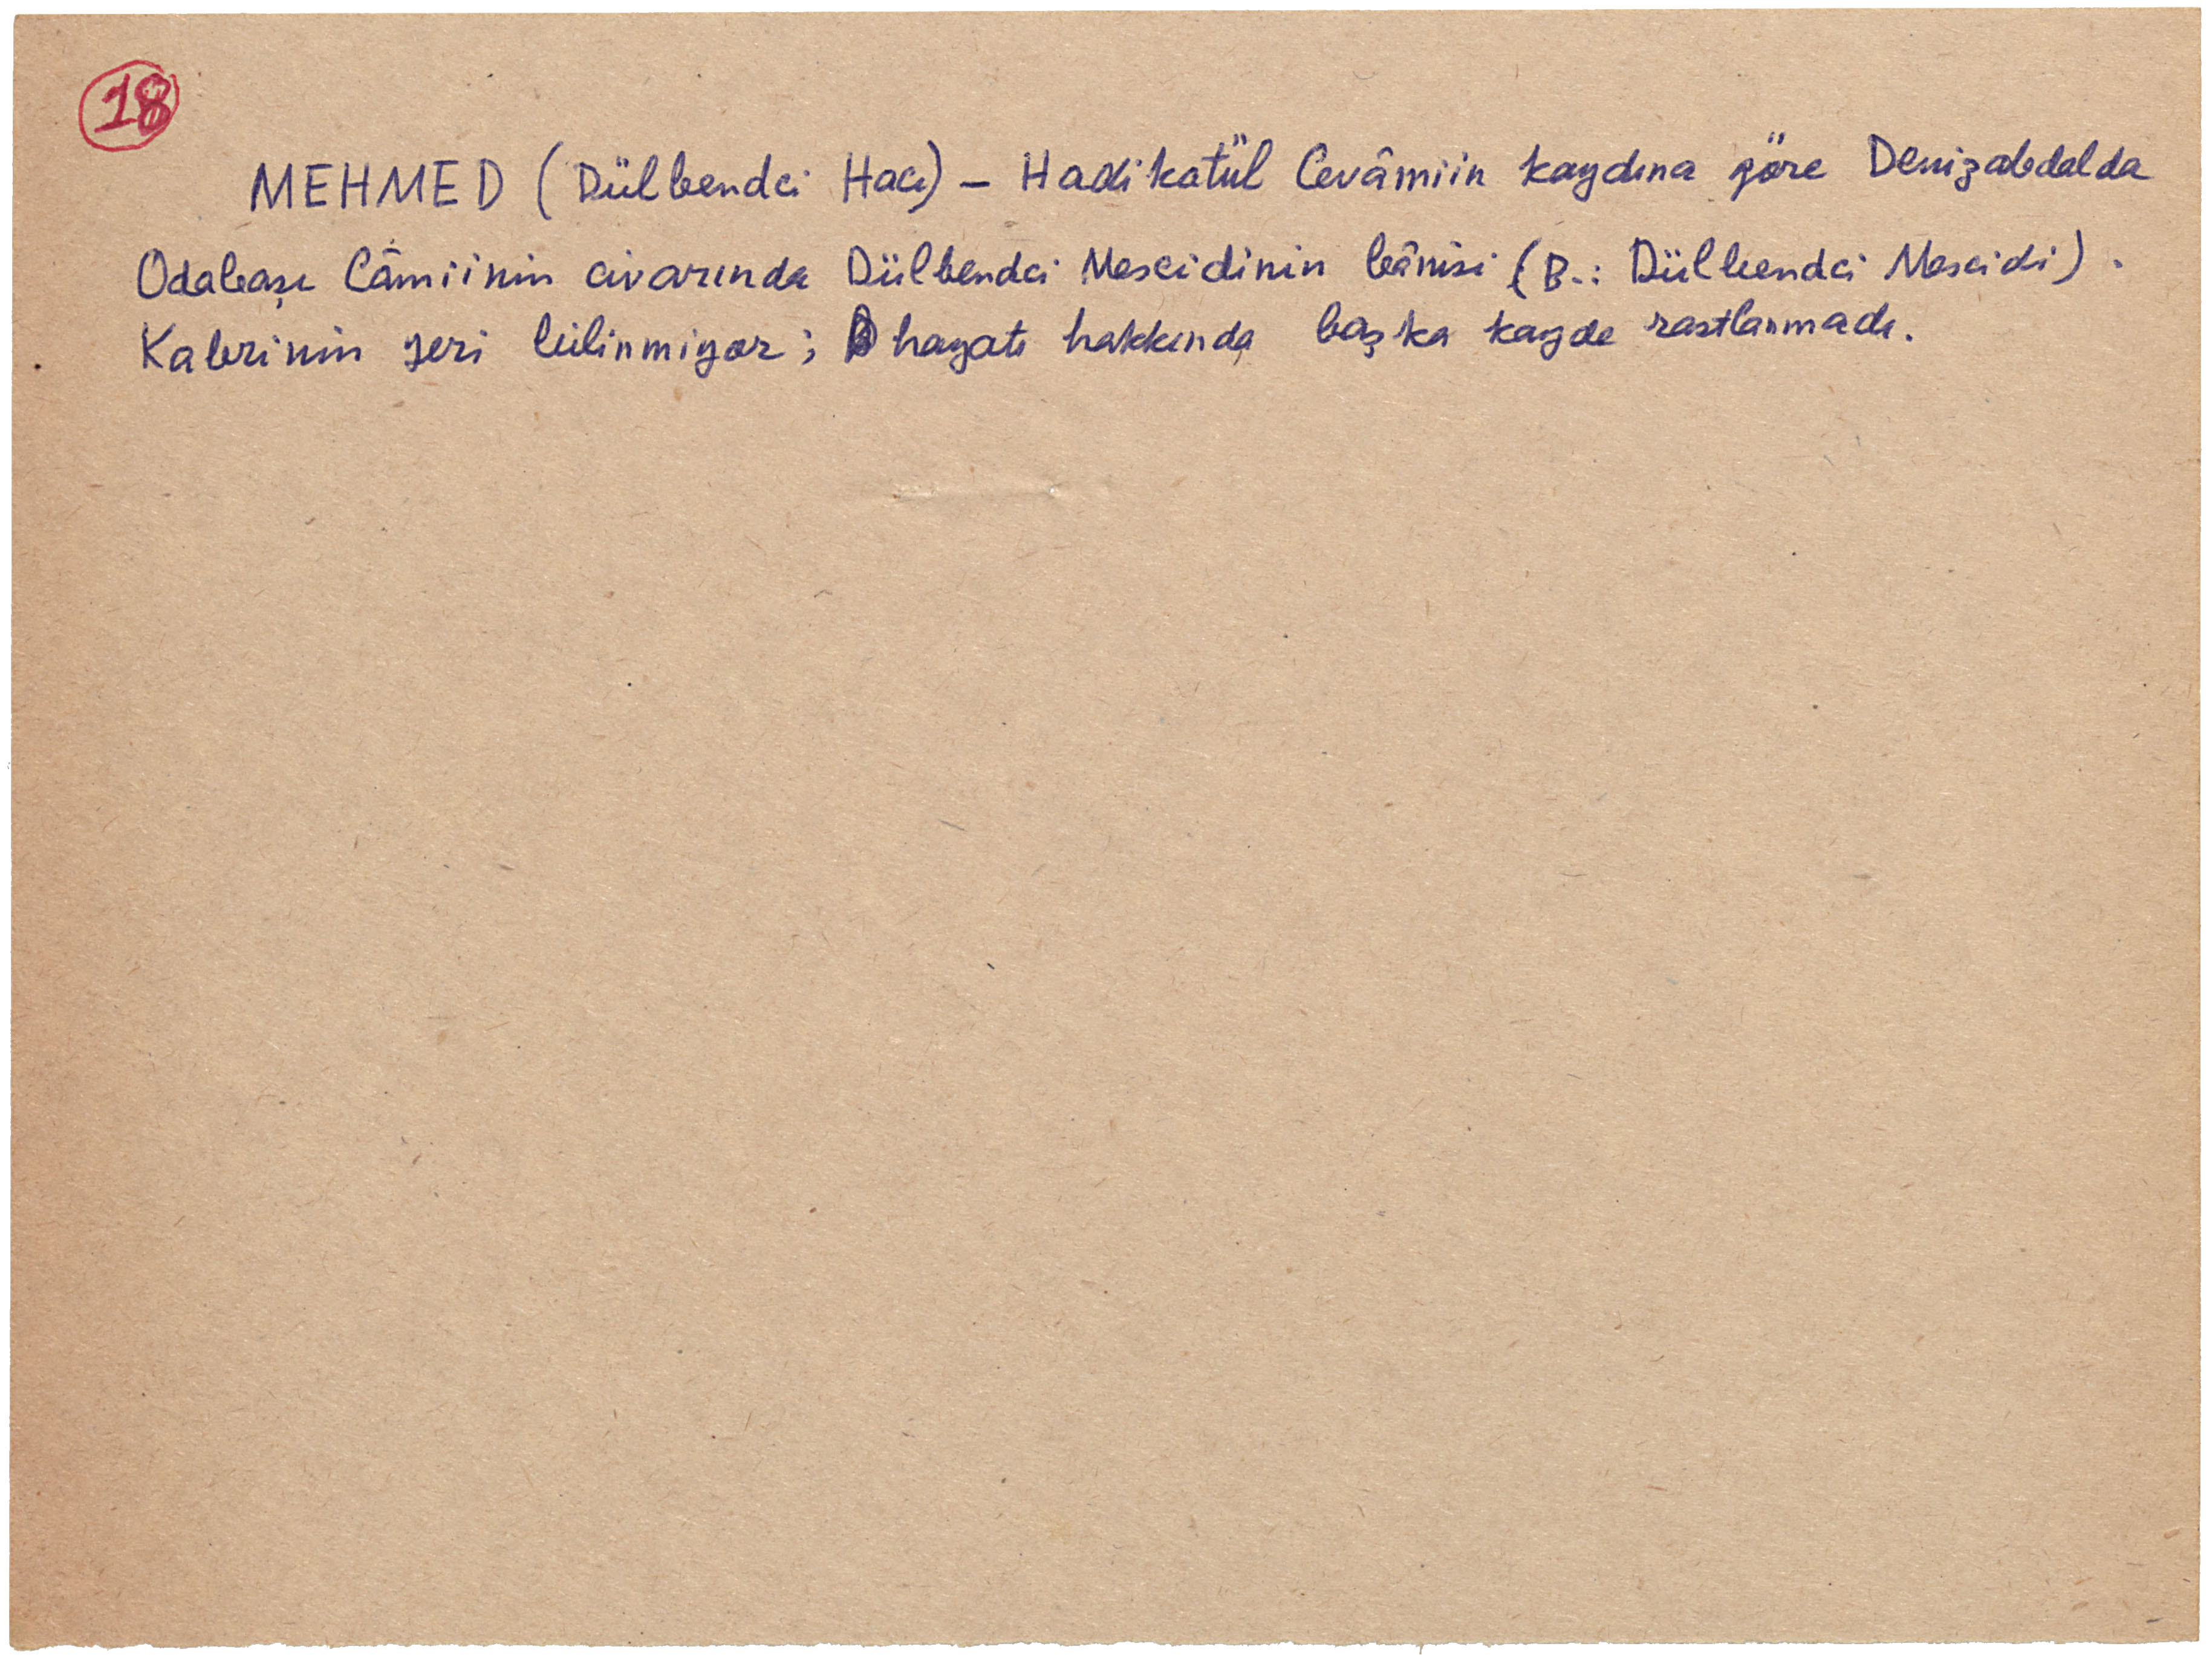 18
MEHMED (Dülbendci Hacı) — Hadikatül Cevâmiin kaydına göre Denizabdalda
Odabaşı Câmiinin civarında Dülbendci Mescidinin bânisi (B.: Dülbendci Mescidi).
Kabrinin yeri bilinmiyor; hayatı hakkında başka kayde rastlanmadı.